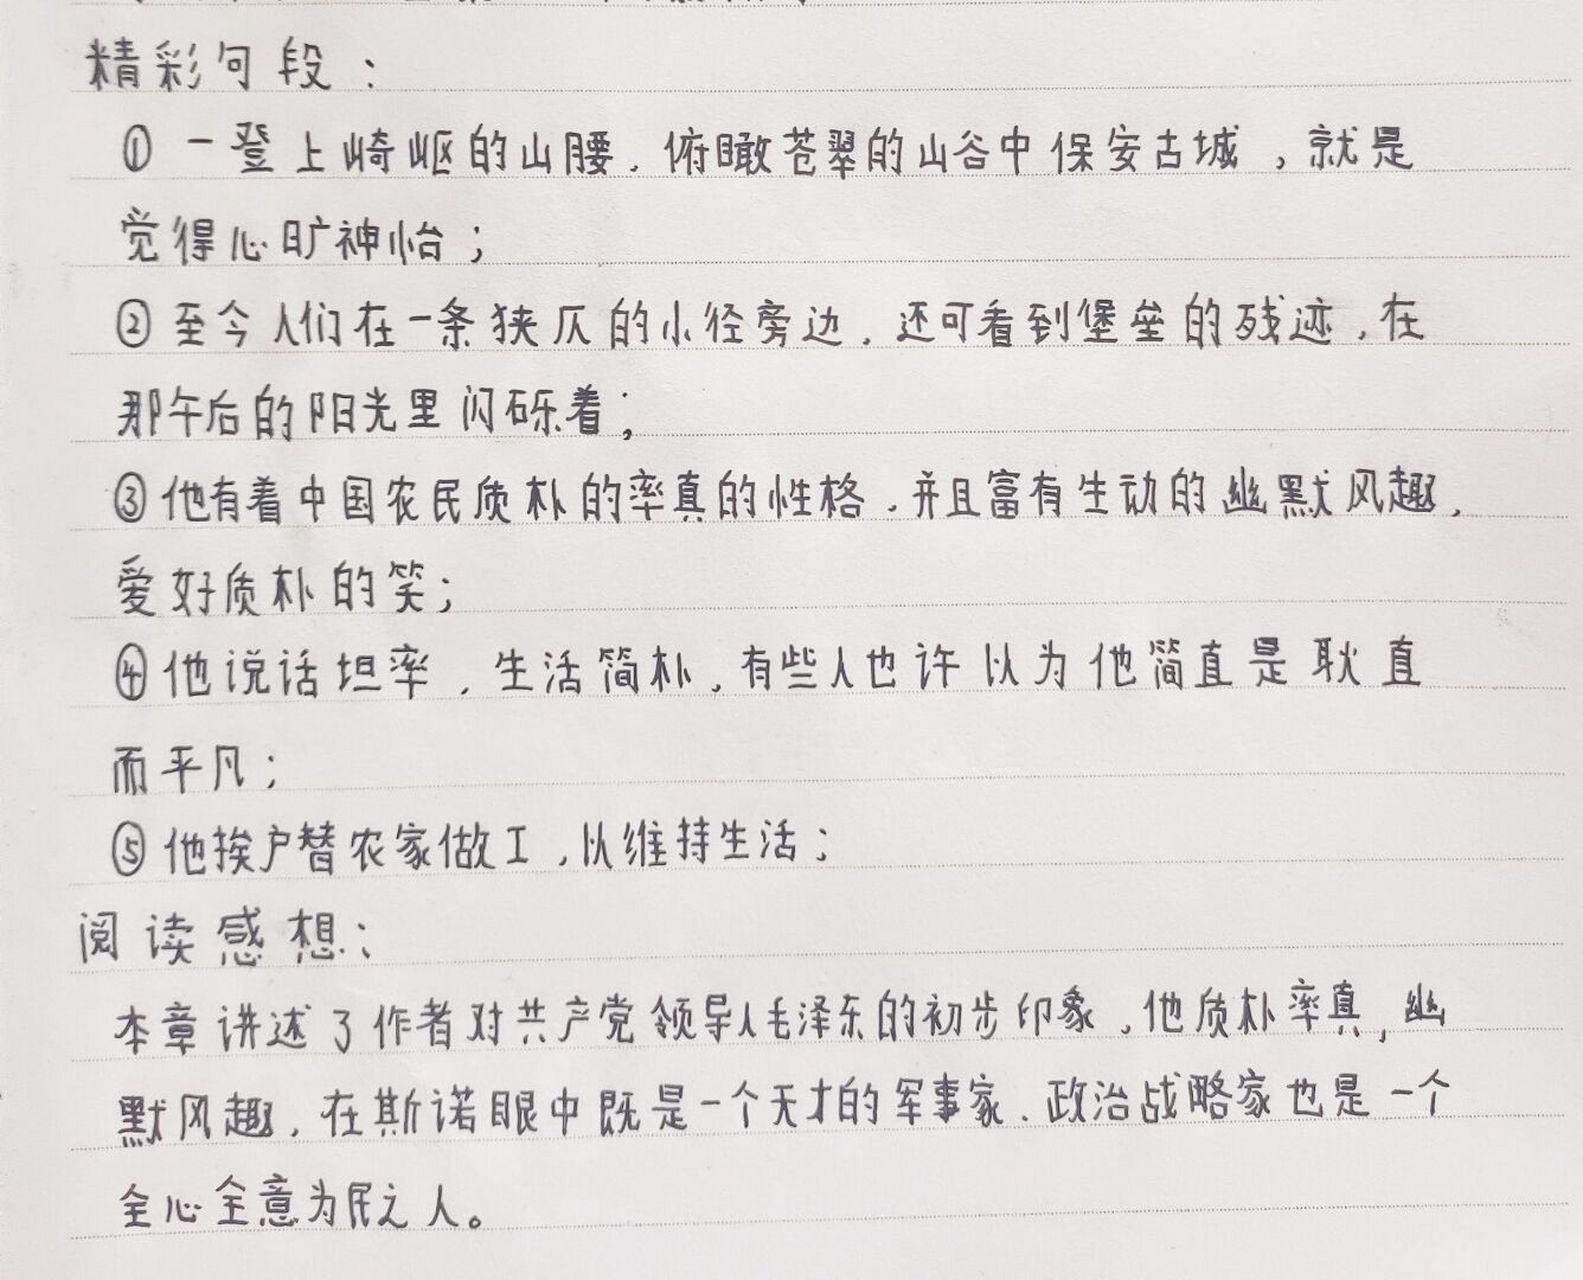 精彩句段：
① 一登上崎岖的山腰，俯瞰苍翠的山谷中保安古城，就是
觉得心旷神怡；
② 至今人们在一条狭仄的小径旁边，还可看到堡垒的残迹，在
那午后的阳光里闪砾着；
③ 他有着中国农民质朴的率真的性格，并且富有生动的幽默风趣，
爱好质朴的笑；
④ 他说话坦率，生活简朴，有些人也许以为他简直是耿直
而平凡；
⑤ 他挨户替农家做工，以维持生活；
阅读感想：
本章讲述了作者对共产党领导人毛泽东的初步印象，他质朴率真，幽
默风趣，在斯诺眼中既是一个天才的军事家、政治战略家也是一个
全心全意为民之人。